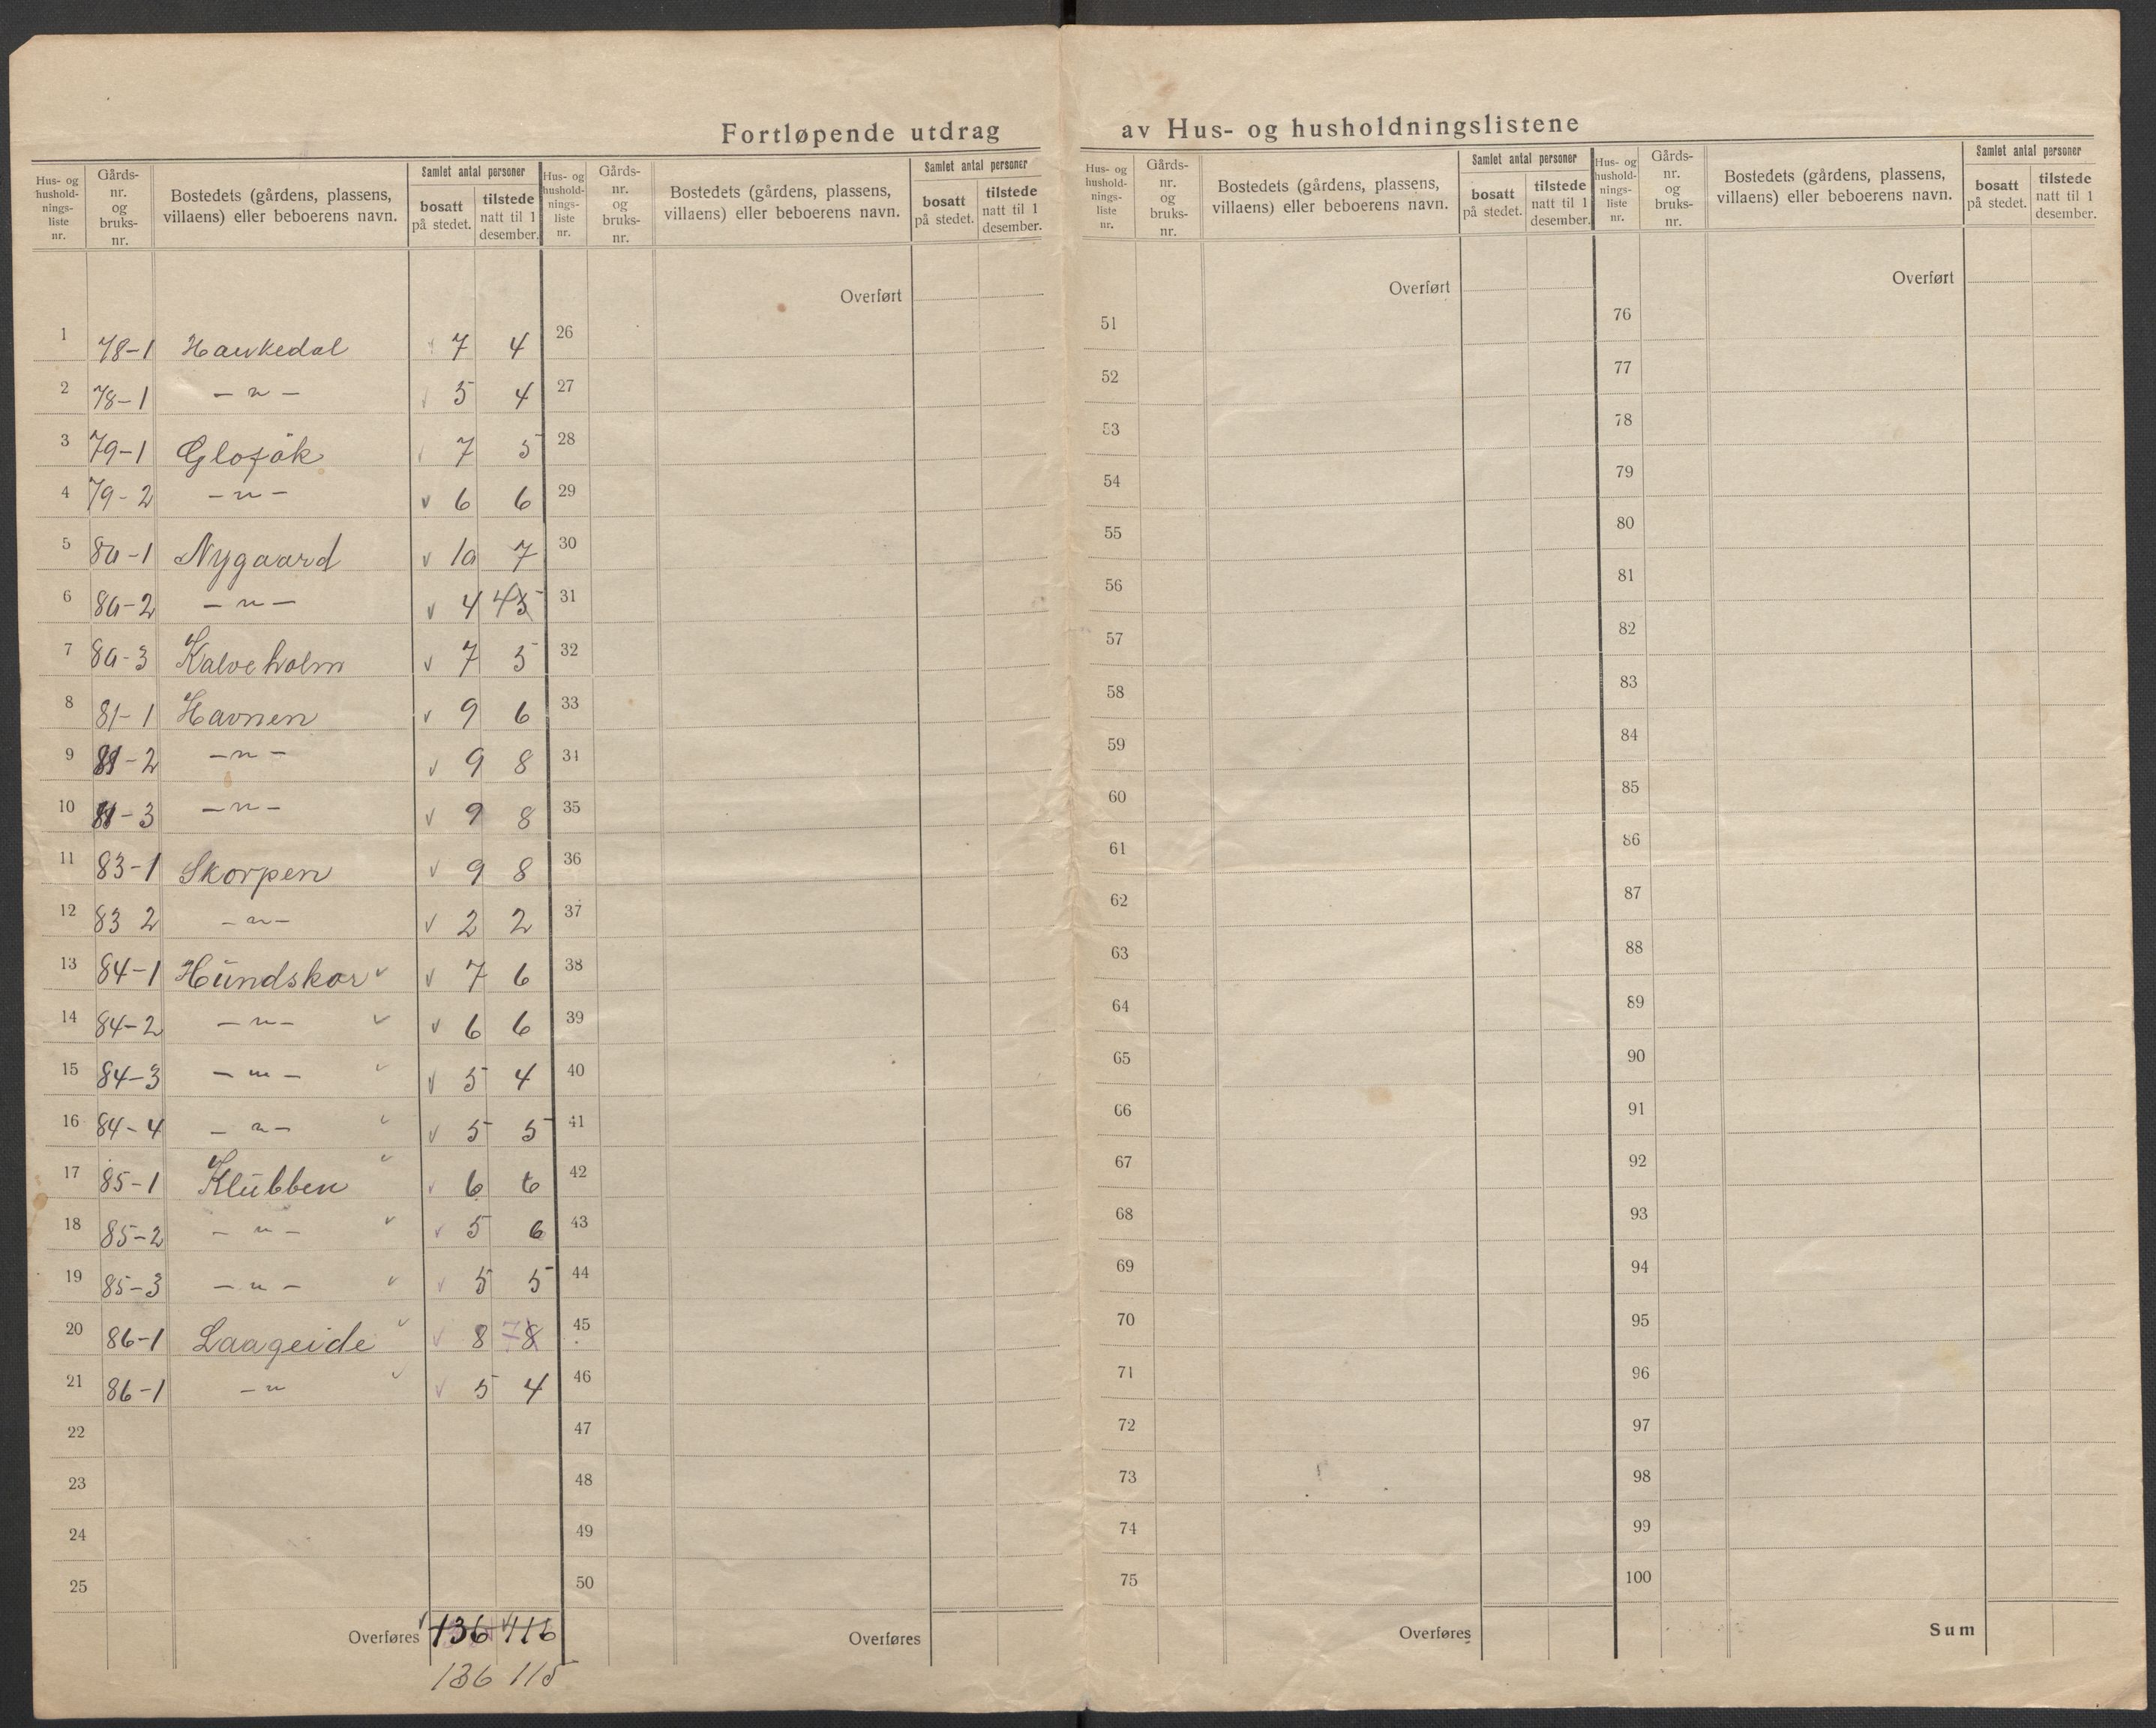 Fortløpende utdrag av Hus- og husholdningslistene
Hus- og hushold-nings-liste nr. Gårds-nr. og bruks-nr. Bostedets (gårdens, plassens, villaens) eller beboerens navn. Samlet antal personer bosatt på stedet. tilstede natt til 1 desember.
Hus- og hushold-nings-liste nr. Gårds-nr. og bruks-nr. Bostedets (gårdens, plassens, villaens) eller beboerens navn. Samlet antal personer bosatt på stedet. tilstede natt til 1 desember.
Hus- og hushold-nings-liste nr. Gårds-nr. og bruks-nr. Bostedets (gårdens, plassens, villaens) eller beboerens navn. Samlet antal personer bosatt på stedet. tilstede natt til 1 desember.
Hus- og hushold-nings-liste nr. Gårds-nr. og bruks-nr. Bostedets (gårdens, plassens, villaens) eller beboerens navn. Samlet antal personer bosatt på stedet. tilstede natt til 1 desember.
Overført Overført Overført
1 78-1 Haukedal 7 4 26 51 76
2 78-1 — " — 5 4 27 52 77
3 79-1 7 5 28 53 78
4 79-2 — " — v 6 6 29 54 79
5 80-1 Nygaard v 10 7 30 55 80
6 80-2 — " — v 4 4 5 31 56 81
7 80-3 Kalveholm v 7 5 32 57 82
8 81-1 Havnen v 9 6 33 58 83
9 81-2 — " — v 9 8 34 59 84
10 81-3 — " — v 9 8 35 60 85
11 83-1 Skorpen v 9 8 36 61 86
12 83 2 — " — v 2 2 37 62 87
13 84-1 Hundskar v v 7 6 38 63 88
14 84-2 — " — v v 6 6 39 64 89
15 84-3 — " — v v 5 4 40 65 90
16 84-4 — " — v v 5 5 41 66 91
17 85-1 Klubben v v 6 6 42 67 92
18 85-2 — " — v v 5 6 43 68 93
19 85-3 — " — v v 5 5 44 69 94
20 86-1 Laageide v v 8 7 8 45 70 95
21 86-1 — " v v 5 4 46 71 96
22 47 72 97
23 48 73 98
24 49 74 99
25 50 75 100
Overføres v 136 v 116 Overføres Overføres Sum
136 115